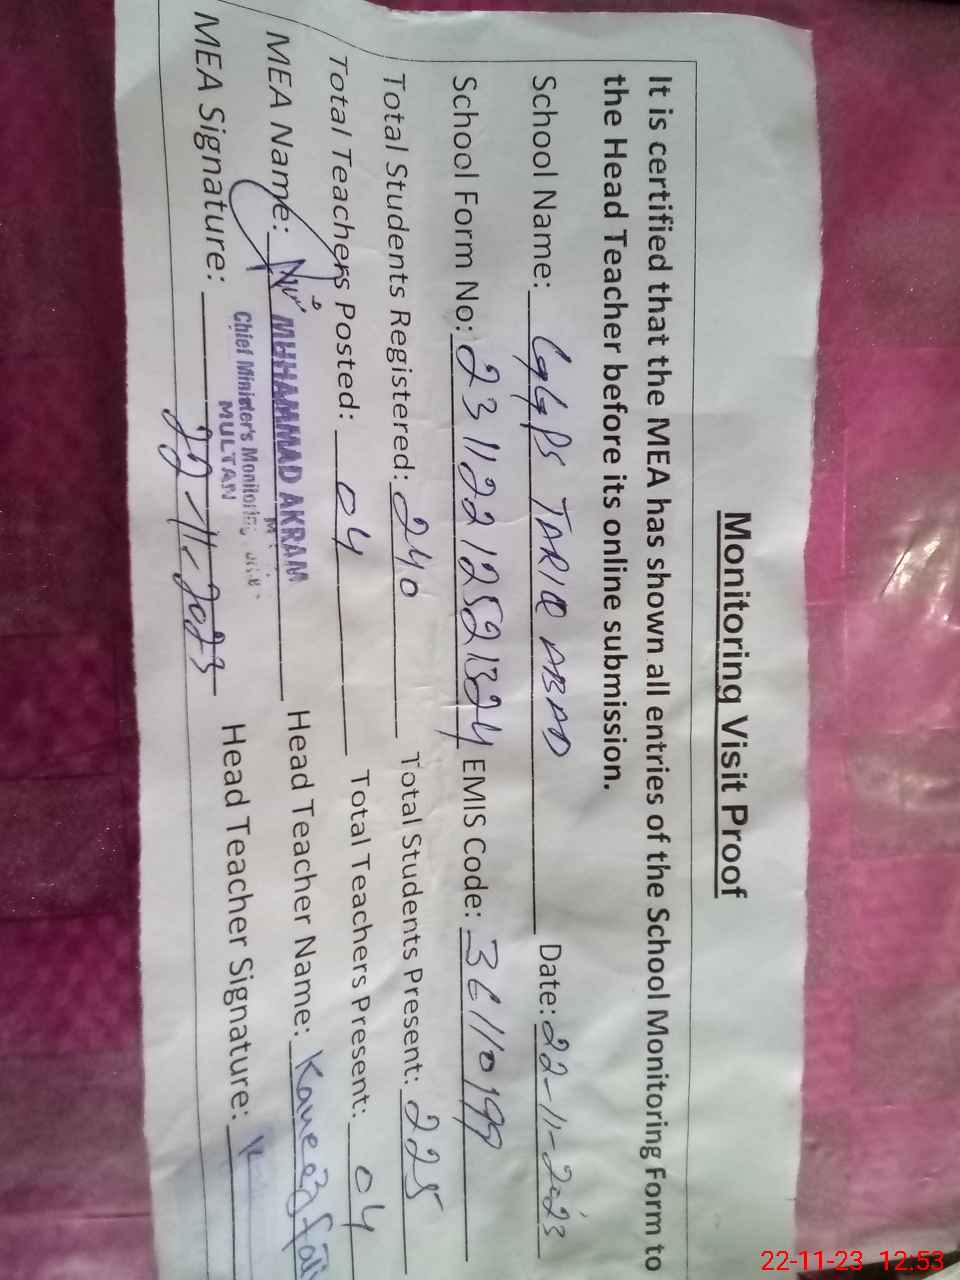 Monitoring Visit Proof
It is certified that the MEA has shown all entries of the School Monitoring Form to
the Head Teacher before its online submission.
School Name: GGPS TARIQ ABAD Date: 22-11-2023
School Form No: 23112212521324 EMIS Code: 36110199
Total Students Registered: 240 Total Students Present: 225
Total Teachers Posted: 04 Total Teachers Present: 04
MEA Name: MUHAMMAD AKRAM Head Teacher Name: Kaneez
Chief Minister's Monitoring
MULTAN
MEA Signature: 22-11-2023 Head Teacher Signature:
22-11-23 12:53